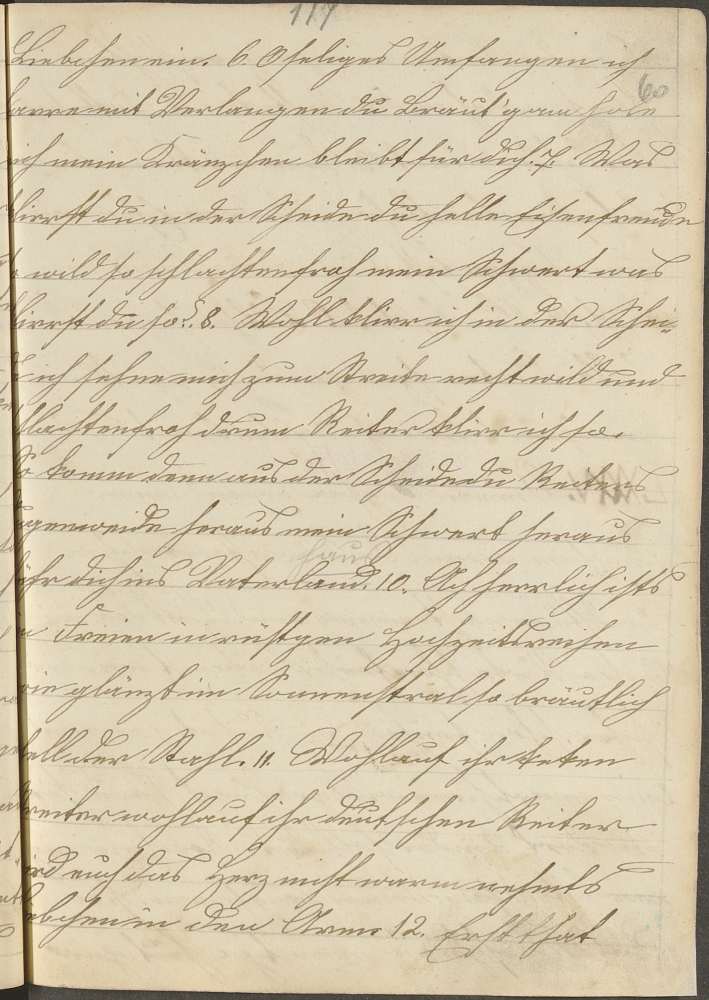 117
60
Liebchen ein. 6. O seliges Umfangen ich
harre mit Verlangen du Bräut'gam hole
ich mein Kränzchen bleibt für dich. 7. Was
klirrst du in der Scheide du helle Eisenfreude
so wild so schlachtenfroh mein Schwert was
klirrst du so? 8. Wohl klirr ich in der Schei-
de ich sehne mich zum Streite recht wild und
schlachtenfroh drum Reiter klirr ich so.
So komm denn aus der Scheide du Reiters
Augenweide heraus mein Schwert heraus
führ dich ins Vaterhaus Vaterland. 10. Ach herrlich ists
im Freien in rüst'gen Hochzeitsreihen
wie glänzt im Sonnenstral so bräutlich
hell der Stahl. 11. Wohlauf ihr keken
Streiter wohlauf ihr deutschen Reiter
wird euch das Herz nicht warm nehmts
Liebchen in den Arm. 12. Erst that